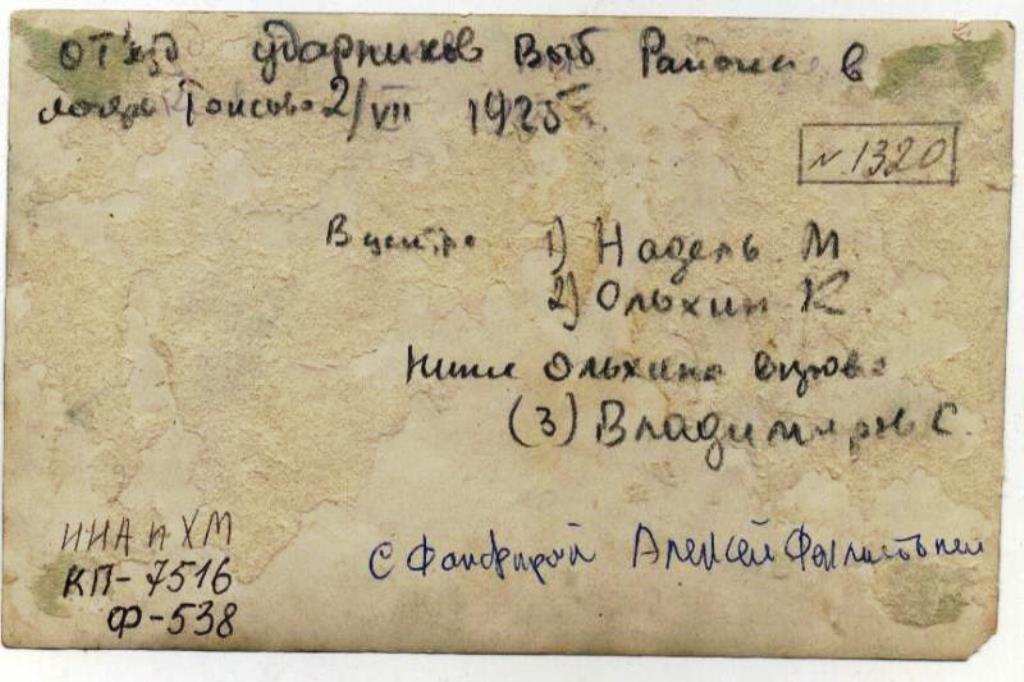 От'езд ударников Выб Района в
Токсово 2/VII 1925
N 1320
В центре 1) Надель М
2) Ольхин К.
Ниже Ольхина
(3) Владимиров С.
с Фанфарой Алексей
НИА и ХМ
КП-7516
Ф-538